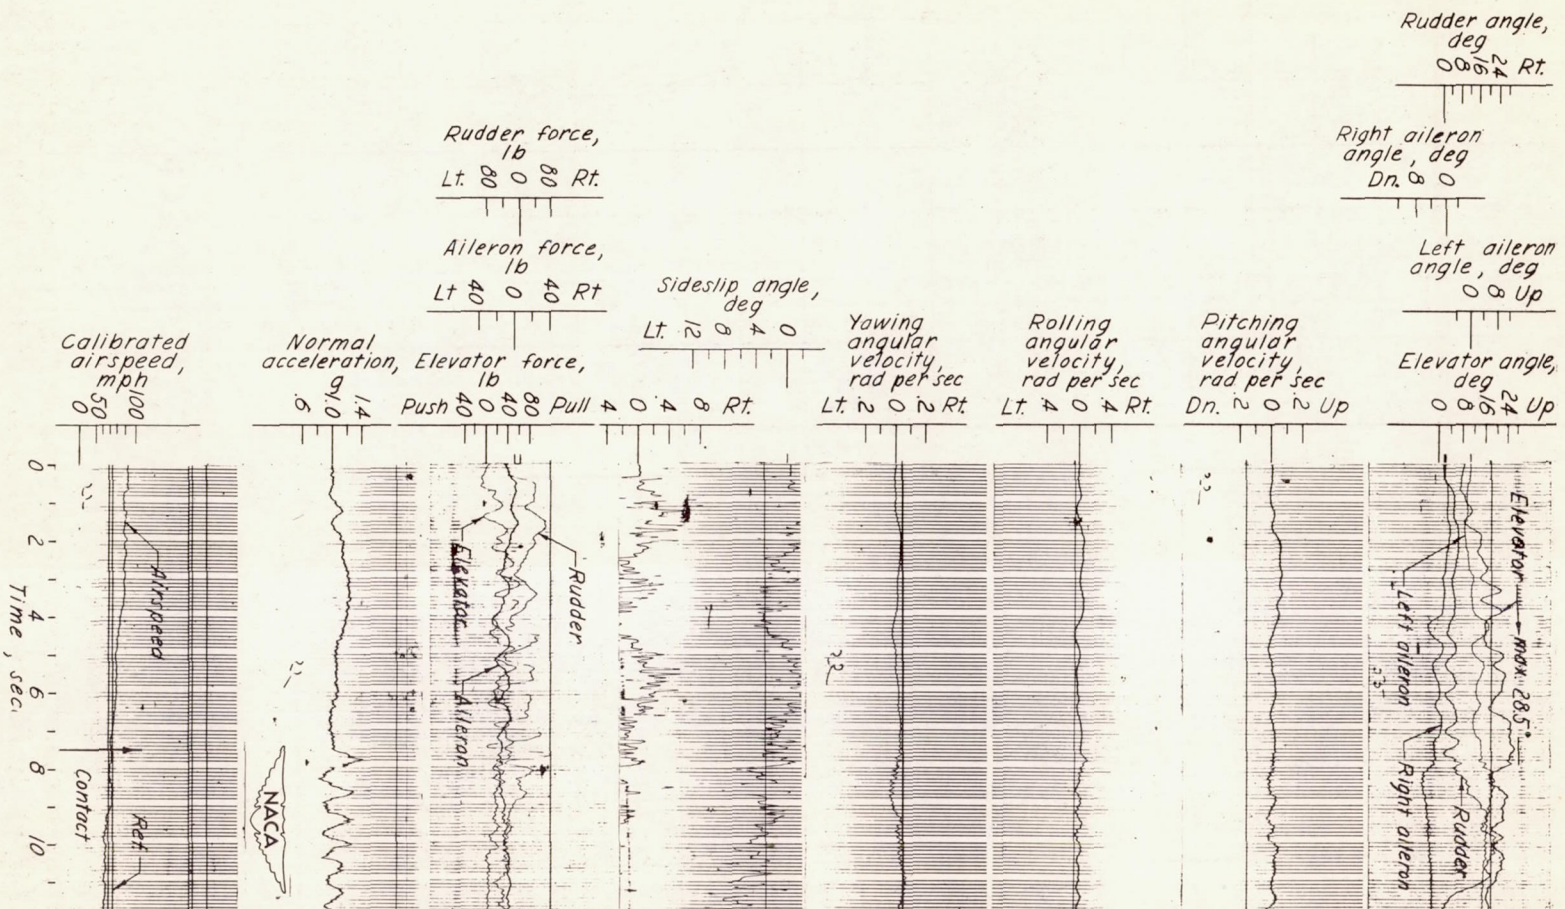 Rudder angle,
deg
0 8 16 24 Rt.
Right aileron
angle, deg
Dn. 8 0
Left aileron
angle, deg
0 8 Up
Elevator angle,
deg
0 8 16 24 Up
Rudder force,
lb
Lt. 80 0 80 Rt.
Aileron force,
lb
Lt 40 0 40 Rt
Elevator force,
lb
Push 40 0 40 80 Pull
Sideslip angle,
deg
Lt. 12 8 4 0
4 0 4 8 Rt.
Calibrated
airspeed,
mph
0 50 100
Normal
acceleration,
g
.6 1.0 1.4
Yawing
angular
velocity,
rad per sec
Lt. .2 0 .2 Rt.
Rolling
angular
velocity,
rad per sec
Lt. .4 0 .4 Rt.
Pitching
angular
velocity,
rad per sec
Dn. .2 0 .2 Up
0
2
4
6
8
10
Time, sec
Airspeed
Contact
Ref.
NACA
Elevator
Aileron
Rudder
22
Elevator
max. 28.5°
Left aileron
Right aileron
Rudder